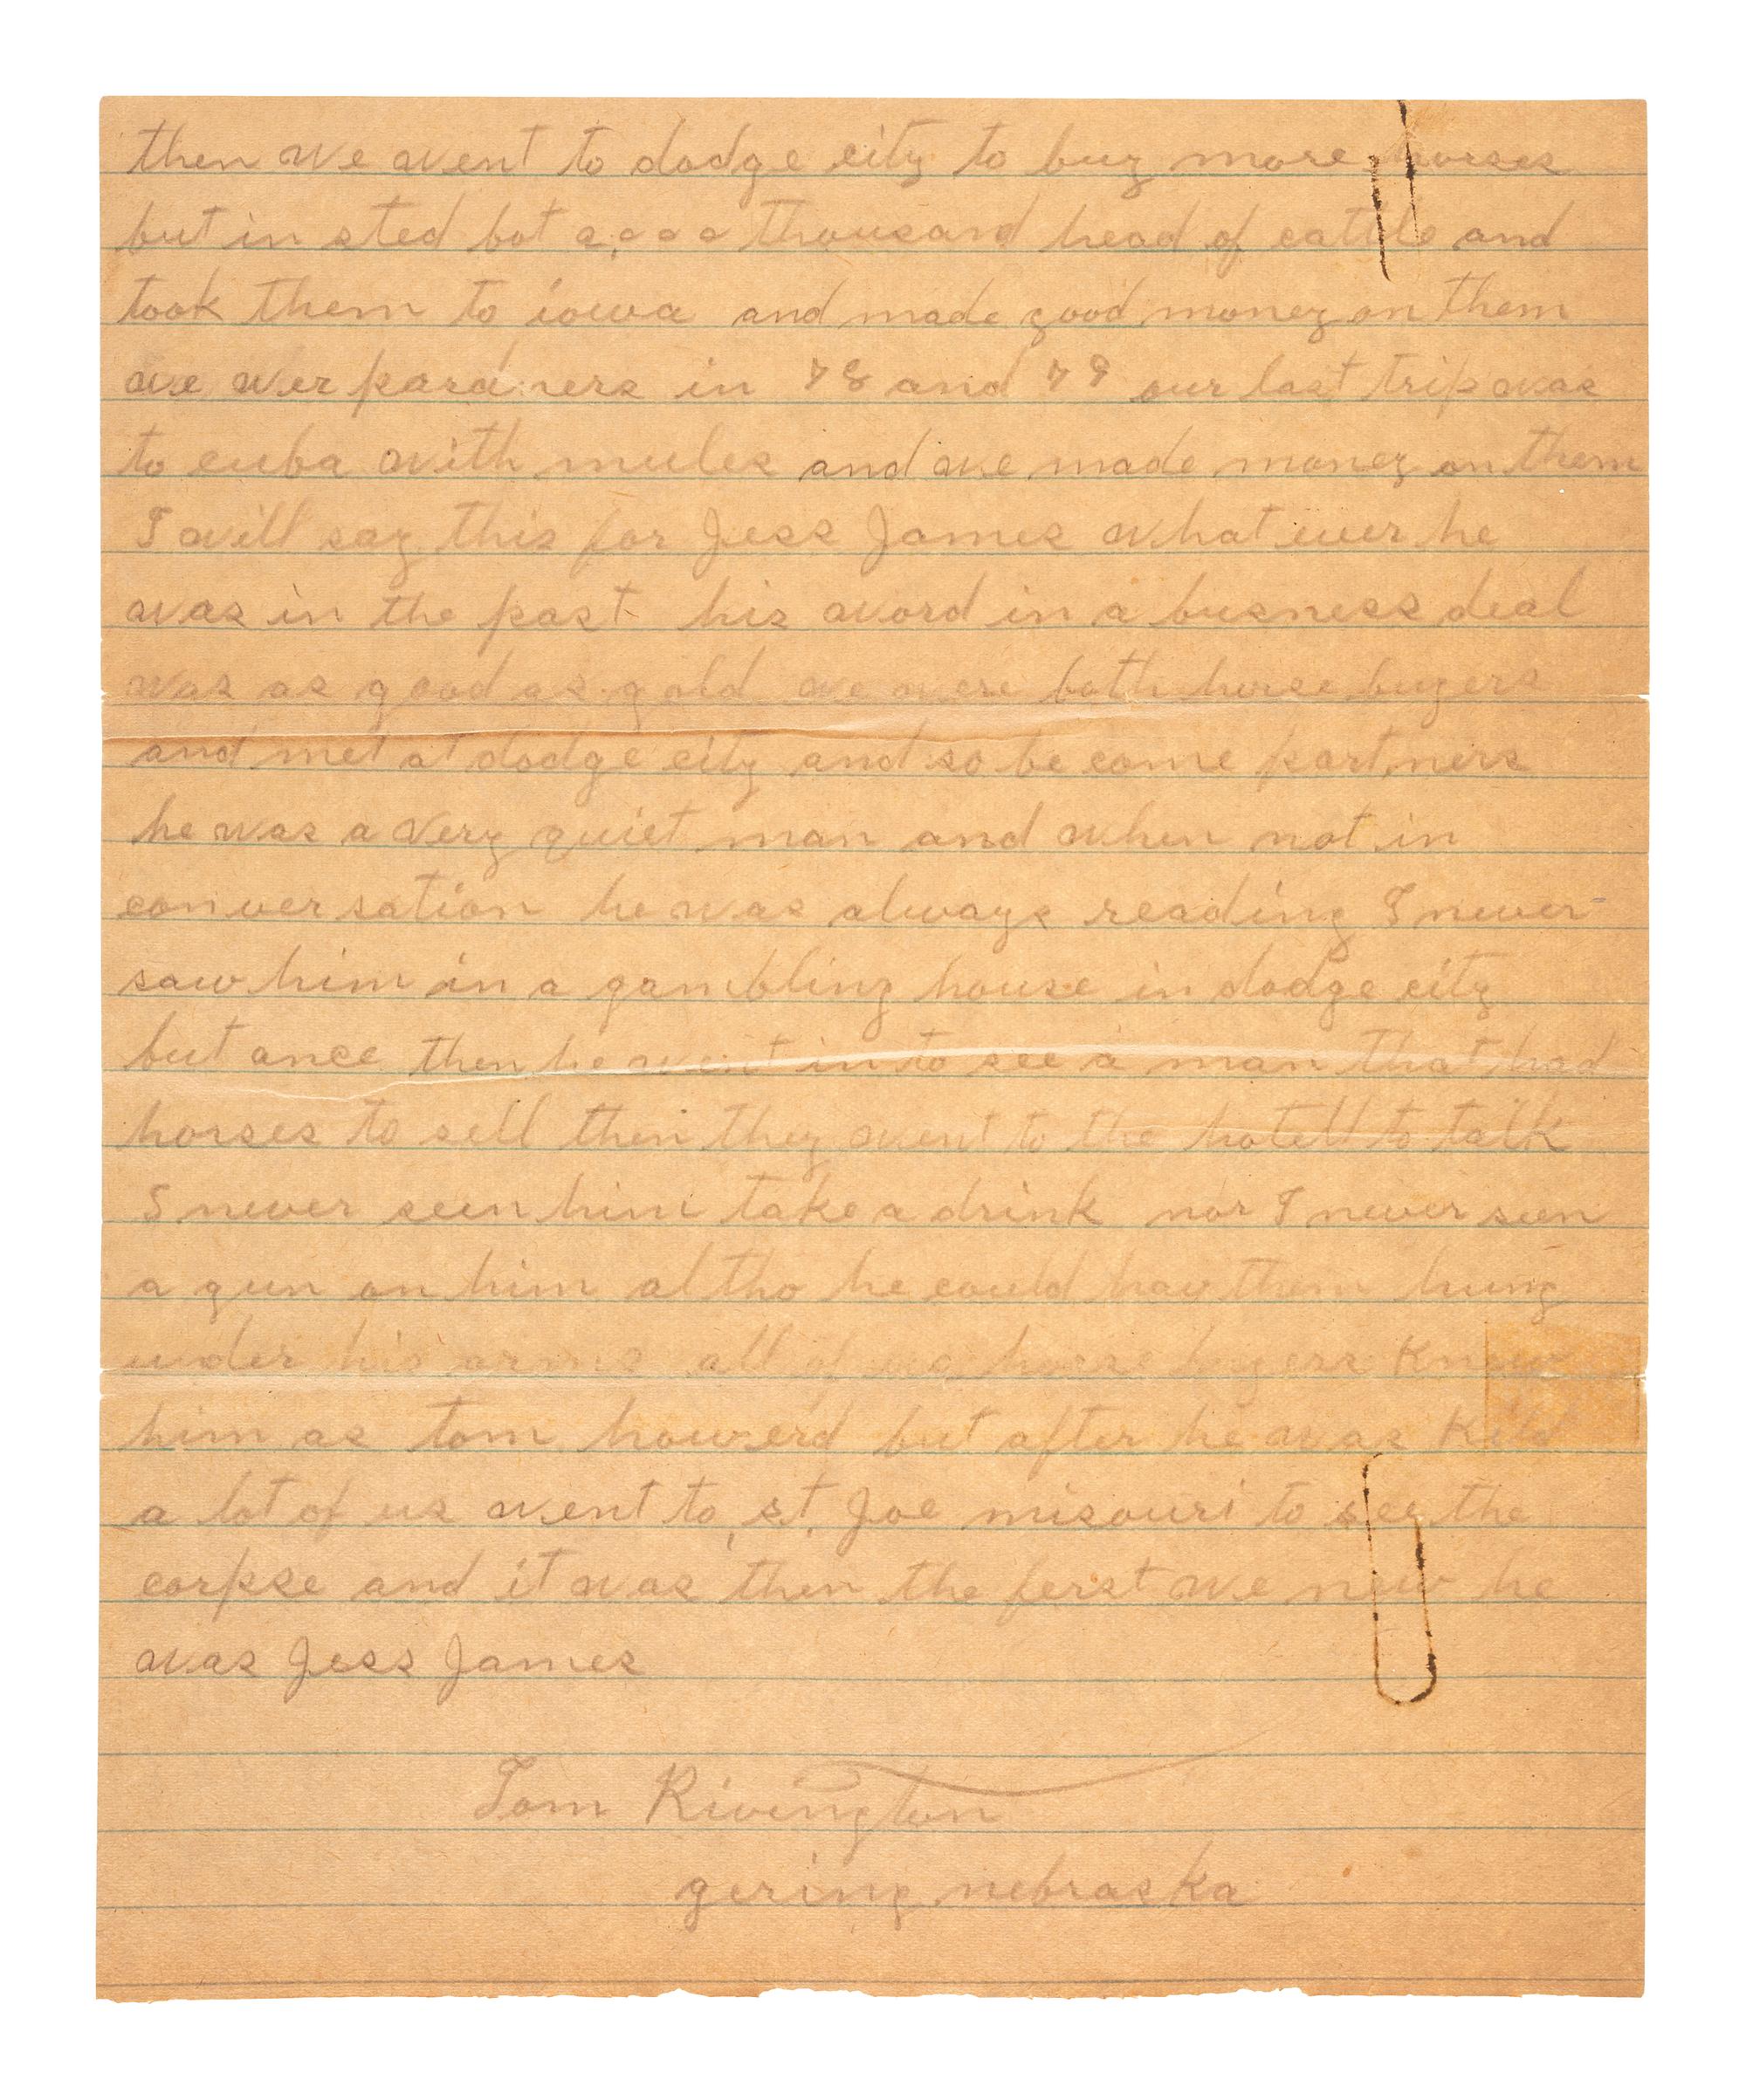 then we went to dodge city to buy more horses
but in sted bot 2,000 thousand head of cattle and
took them to iowa and made good money on them
we wer pardners in 78 and 79 our last trip was
to cuba with mules and we made money on them
I will say this for Jess James what ever he
was in the past his word in a busness deal
was as good as gold we were both horse buyers
and met at dodge city and so be come partners
he was a very quiet man and when not in
conversation he was always reading I never
saw him in a gambling house in dodge city
but once then he went in to see a man that had
horses to sell then they went to the hotell to talk
I never seen him take a drink nor I never seen
a gun on him altho he could hav them hung
under his arms all of us horse buyers Knew
him as tom howerd but after he was Kild
a lot of us went to st. Joe misouri to see the
corpse and it was then the ferst we new he
was Jess James
Tom Rivington
gering nebraska